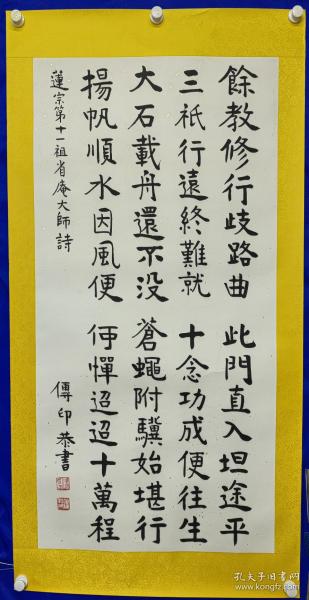 餘教修行歧路曲 此門直入坦途平
三祇行遠終難就 十念功成便往生
大石載舟還不没 蒼蠅附驥始堪行
揚帆順水因風便 何憚迢迢十萬程
蓮宗第十一祖省庵大師詩
傳印恭書
孔夫子旧书网
www.kongfz.com